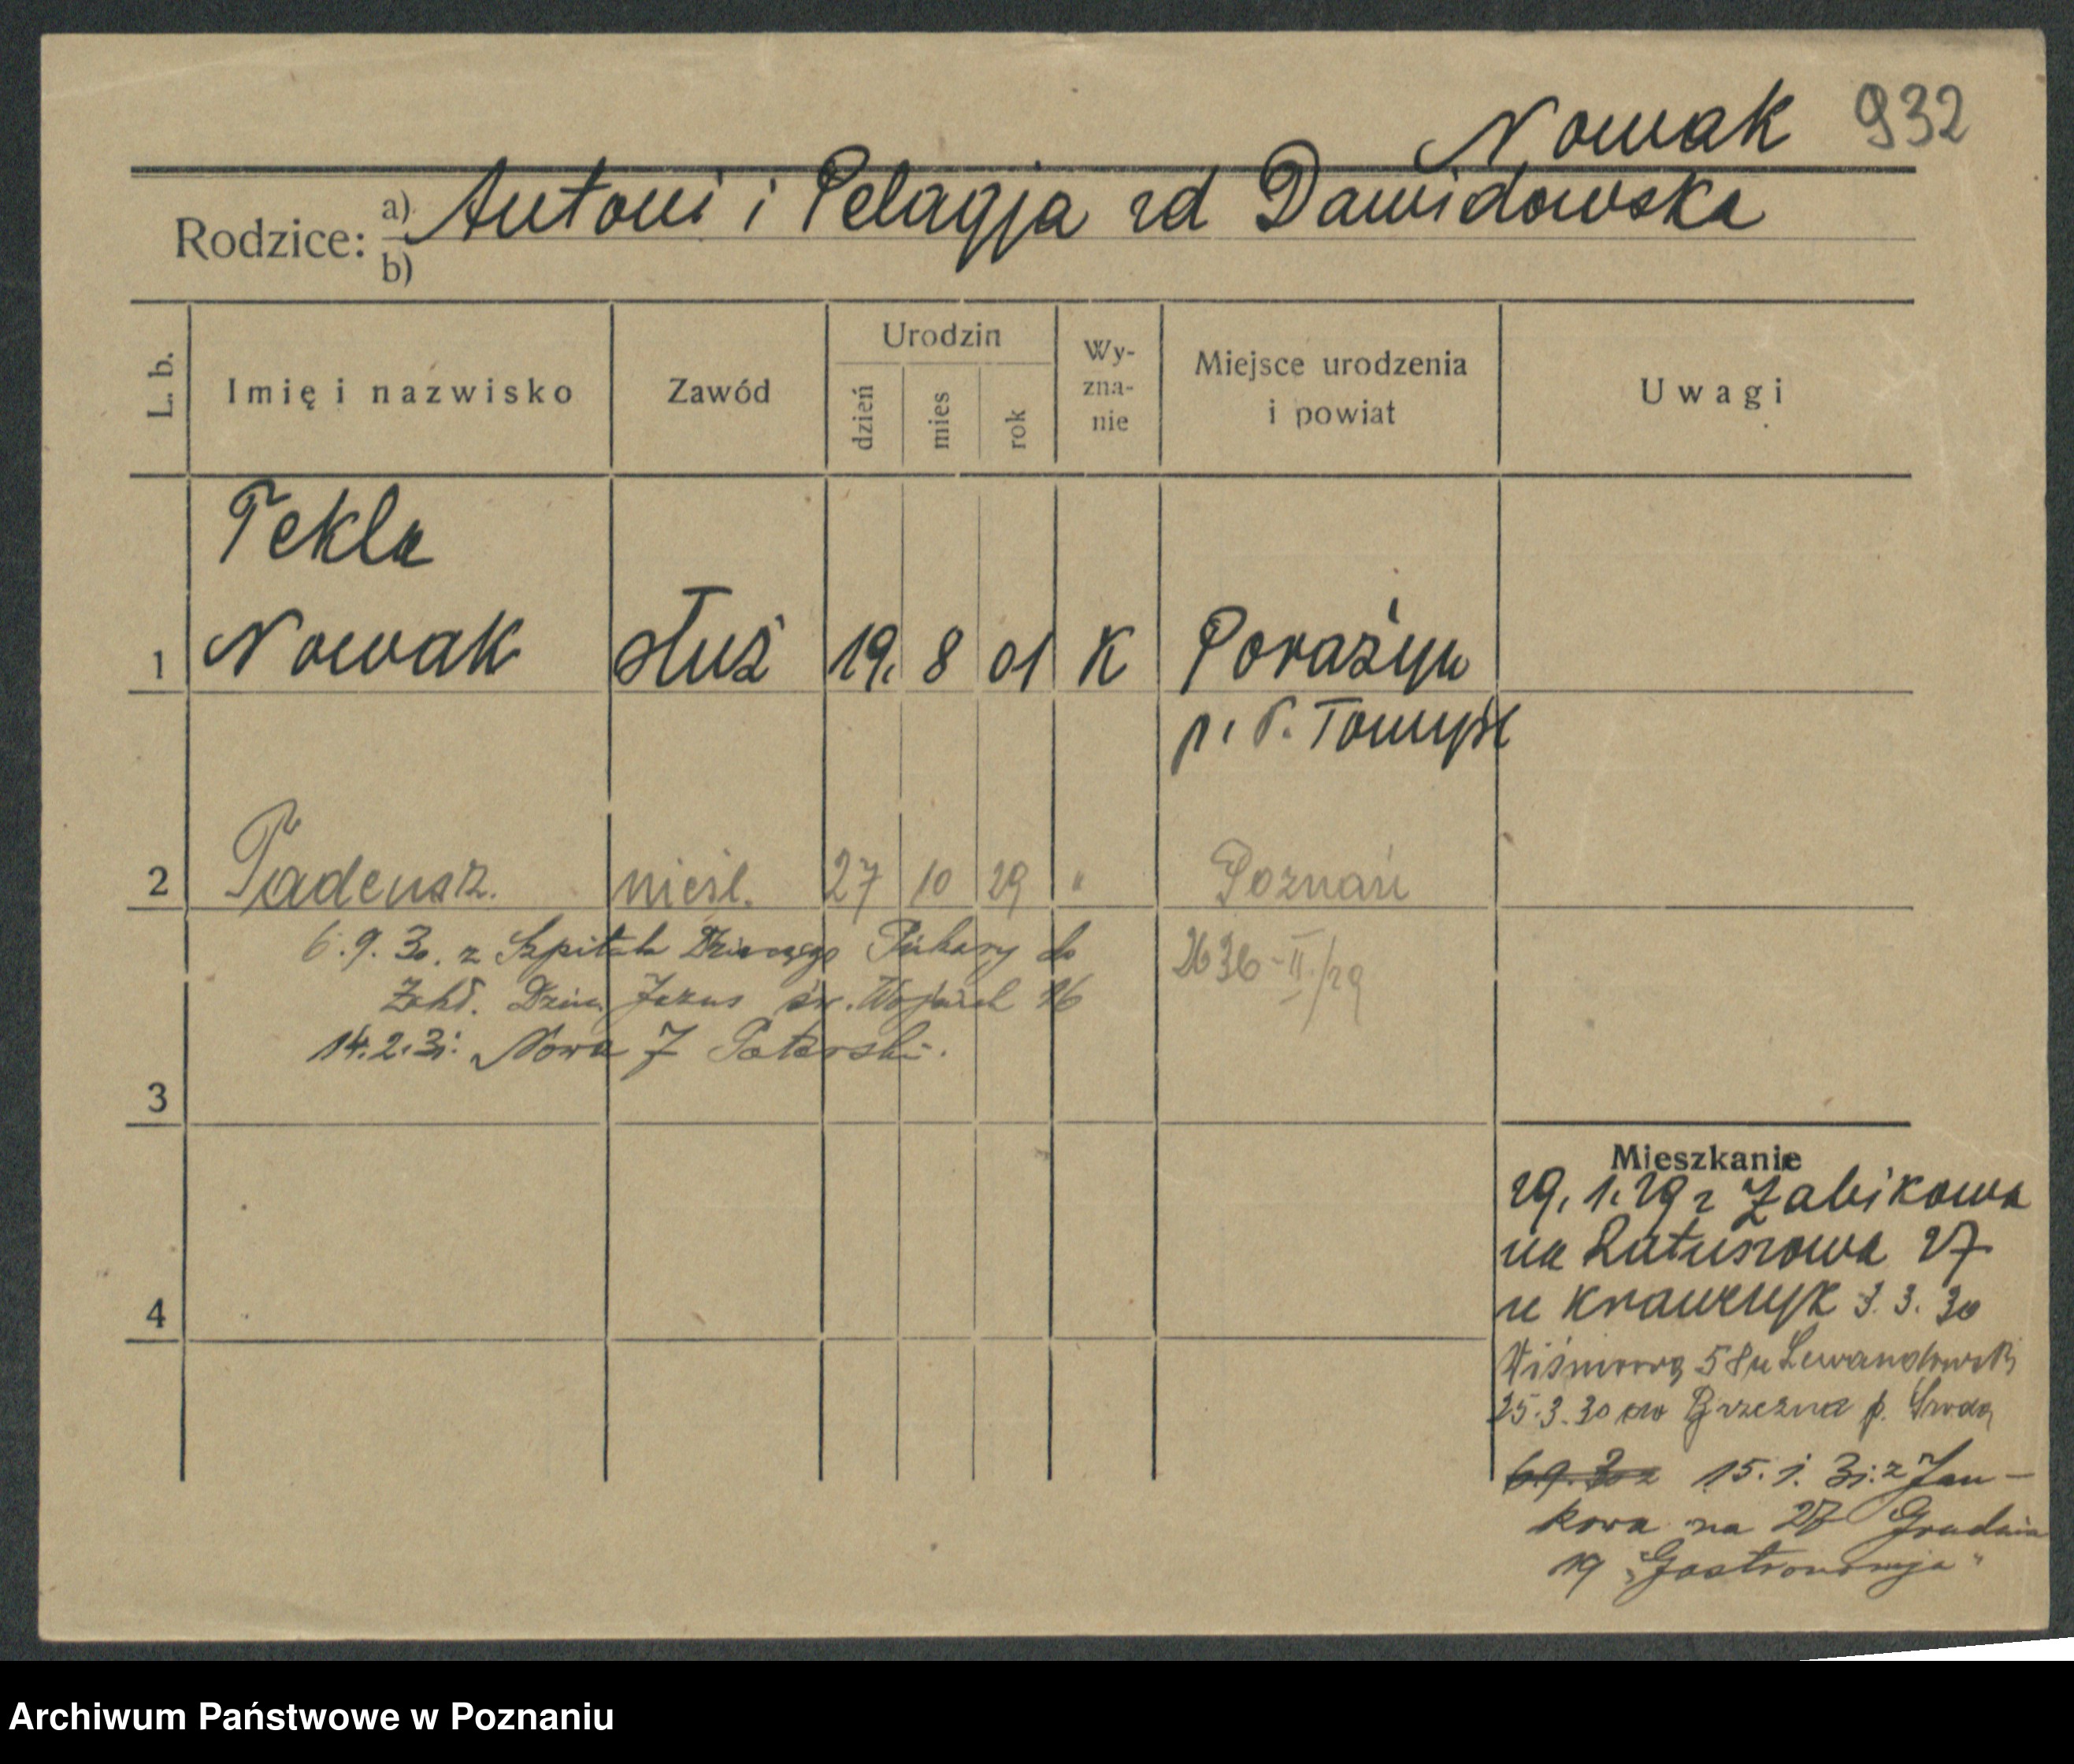 Nowak 932
Rodzice: a) Antoni i Pelagja zd Dawidowska
b)
L. b.
Imię i nazwisko
Zawód
Urodzin
dzień
mies
rok
Wy-
zna-
nie
Miejsce urodzenia
i powiat
Uwagi
Tekla
1 Nowak służ 19. 8 01 K Porażyn
p. N. Tomyśl
2 Tadeusz. nieśl. 27 10 29 " Poznań
6.9.30. z Szpitala Dziecięcego Piekary do
2636-II/29
Zakł. Dziec. Jezus św. Wojciech 26
14.2.31. Nowa 7 Paterski.
3
4
Mieszkanie
29. 1. 29 z Żabikowa
na Ratuszowa 27
u Krawczyk 3. 3. 30
58 u Lewandowski
25.3.30 do p. Środa
6.9.30 z 15.1.31. z Jan-
kowa na 27 Grudnia
19 „Gastronomja"
Archiwum Państwowe w Poznaniu